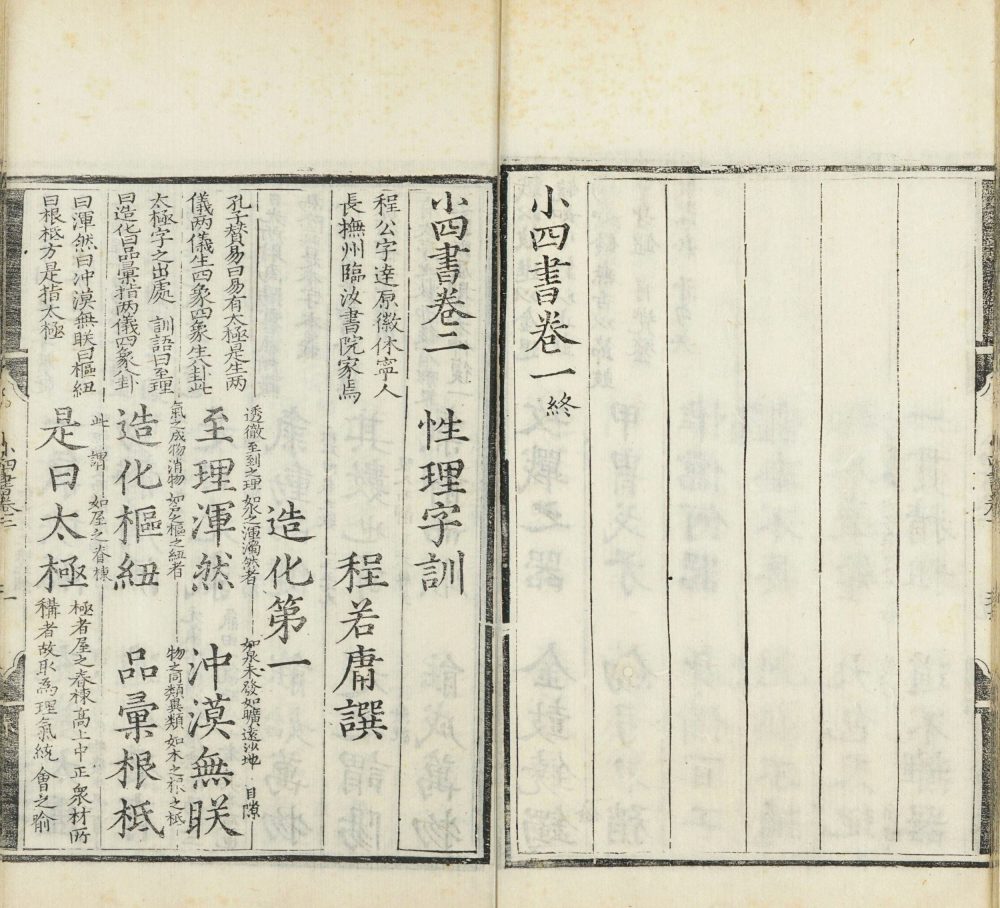 小四書卷一終
小四書卷二
性理字訓
程公字達原徽休寧人
長撫州臨汝書院家焉
程若庸譔
造化第一
孔子贊易曰易有太極是生兩
儀兩儀生四象四象生八卦此
太極字之出處 訓語曰至理
曰造化曰品彙指兩儀四象八卦
曰渾然曰沖漠無眹曰樞紐
曰根柢方是指太極
透徹至到之理 如水之渾濁然者 如泉未發如曠遠沙地 目隙
至理渾然 沖漠無眹
氣之成物消物 如戶之樞之紐者 物之同類異類 如木之根之柢
造化樞紐 品彙根柢
此 謂 如屋之脊棟
是曰太極
極者屋之脊棟高上中正衆材所
構者故取為理氣統會之喻
小四書卷二